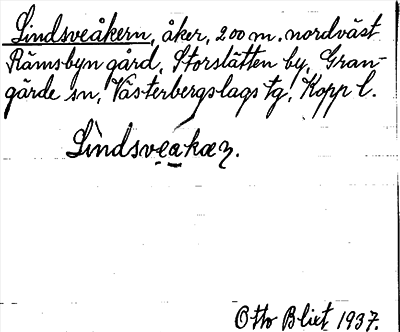 Lindsveåkern, åker, 200 m. nordväst
Rämsbyn gård, Storslätten by, Gran-
gärde sn, Västerbergslags tg, Kopp l.
Lìndsveakæɳ.
Otto Blixt 1937.